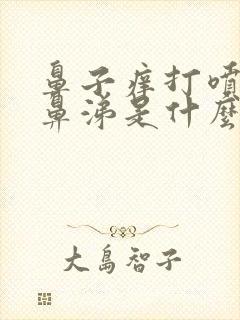 鼻子痒打噴
鼻涕是什麼
大島智子